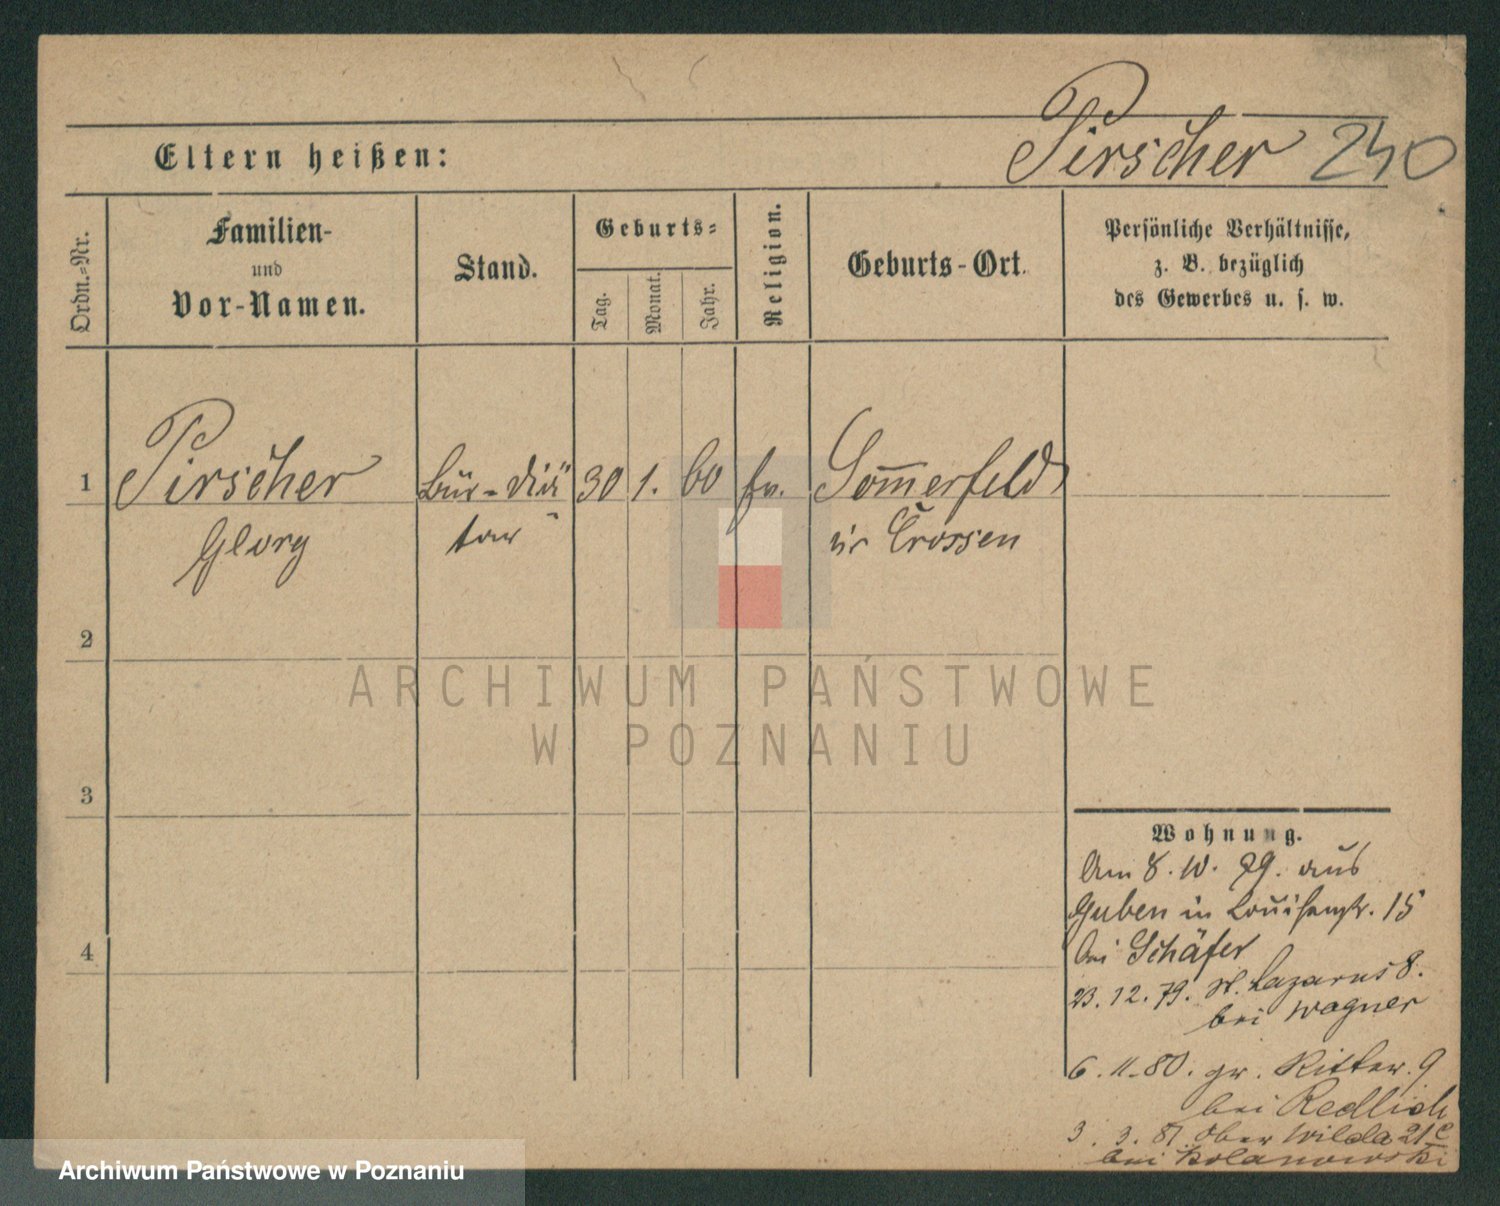 Pirscher 240
Eltern heißen:
Ordn.=Nr.
Familien-
und
Vor-Namen.
Stand.
Geburts=
Tag.
Monat.
Jahr.
Religion.
Geburts-Ort.
Persönliche Verhältnisse,
z. B. bezüglich
des Gewerbes u. s. w.
1 Pirscher Bür-Diä 30 1. 60 ev. Sommerfeld
Georg tar Crossen
2
3
4
Wohnung.
Am 8. 10. 79. aus
Guben in Louisenstr. 15
bei Schäfer
23. 12. 79. St. Lazarus 8.
bei Wagner
6. 11. 80. gr. Ritter. 9
bei Redlich
3. 3. 81. Ober Wilda 21
bei Kolanowski
ARCHIWUM PAŃSTWOWE
W POZNANIU
Archiwum Państwowe w Poznaniu